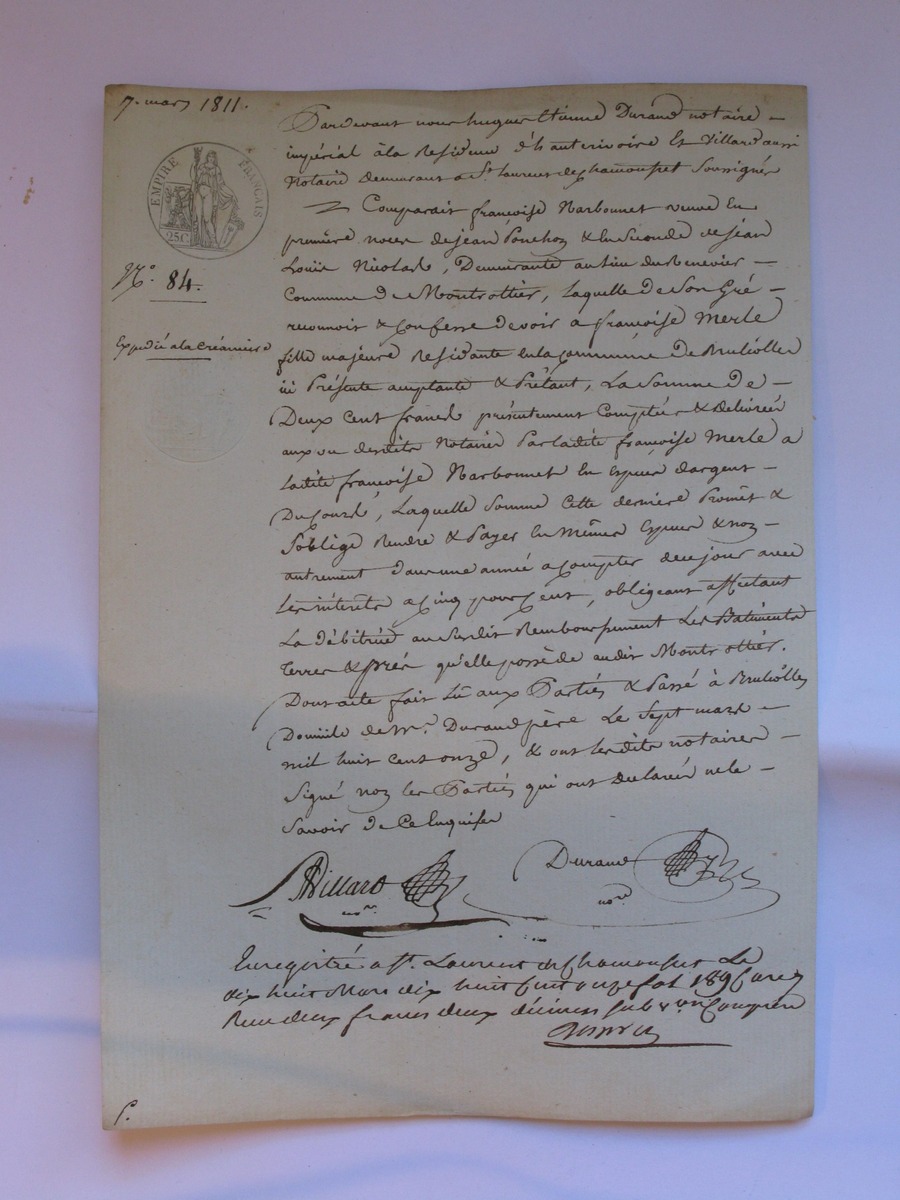 7. mars 1811.
EMPIRE FRANÇAIS
25C
N.° 84.
Expédié a la Créanciere
Pardevant nous hugues Etienne Durand notaire
impérial à la Residence d'hauterivoire Et Villard aussi
Notaire Demeurant a St. laurent de chamousset Soussignés
Comparait françoise Narbonnet veuve En
premiere noces de jean Ponchon & En Seconde de jean
Louis Nicolas, Demeurante au lieu du
Commune De Montrottier, laquelle De Son Gré
reconnoit & Confesse devoir a françoise Merle
fille majeure Residante En la Commune De Brullolles
ici Présente acceptante & Prêtant, La Somme De
Deux Cent francs présentement Comptés & Délivrés
aux vu desdits Notaires Par ladite françoise Merle a
Ladite françoise Narbonnet En Espèces d'argent
Du Cours, Laquelle Somme Cette derniere Promêt &
S'oblige Rendre & Payer En mêmes Espèces & non
autrement dans une année a Compter de ce jour avec
Les intérêts a Cinq pour Cent, obligeant affectant
La Débitrice au Susdit Remboursement Les Batiments
Terres & prés qu'elle possède audit Montrottier.
Dont acte fait lû aux Parties & Passé à Brullolles
Domicile de Mr. Durand père Le Sept mars
mil huit cent onze, & ont lesdits notaires
Signé non les Parties qui ont déclaré ne le
Savoir de Ce Enquises
Villard
nore
Durand
nore
Enregistré a St. Laurent de Chamousset Le
dix huit Mars dix huit Cent onze fol 189
Reçu deux francs deux décimes subvon Comprise